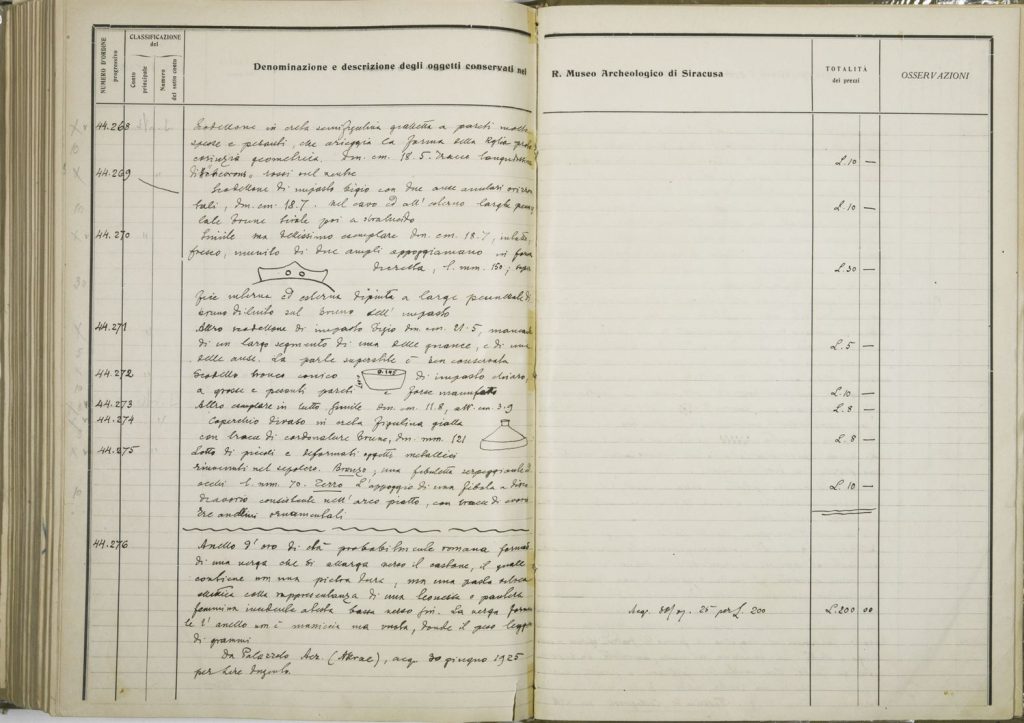 NUMERO D'ORDINE progressivo
CLASSIFICAZIONE del
Conto principale
Numero del sotto conto
Denominazione e descrizione degli oggetti conservati nel R. Museo Archeologico di Siracusa
TOTALITÀ dei prezzi
OSSERVAZIONI
44.268 Scodellone in creta semifigulina gialletta a pareti molto
spesse e pesanti, che arieggia la forma della
corinzia geometrica. Dm. cm. 18.5. Tracce
di rossi nel ventre
L. 10 —
44.269 Scodellone di impasto bigio con due anse anulari orizzon
tali, dm. cm. 18.7. nel cavo ed all' esterno larghe penne
late brune
L. 10 —
44.270 Simile ma bellissimo esemplare dm. cm. 18.7, intatto,
fresco, munito di due ampli appoggiamano in forma
, l. mm. 150; super
L. 30 —
ficie interna ed esterna dipinta a large pennellate di
bruno diluito sul bruno dell' impasto
44.271 Altro scodellone di impasto bigio dm. cm. 21.5, mancante
di un largo segmento di una delle guance, e di una
delle anse. La parte superstite è ben conservata
L. 5 —
44.272 Scodello tronco conico 0.145 di impasto chiaro,
a grosse e pesanti pareti e forse
L. 10 —
44.273 Altro esemplare in tutto simile dm. cm. 11.8, alt. cm. 3.9
L. 8 —
44.274 Coperchio di vaso in creta figulina gialla
con tracce di cordonature brune, dm. mm. 121
L. 8 —
44.275 Lotto di piccoli e deformati oggetti metallici
rinvenuti nel sepolcro. Bronzo; una fibuletta serpeggiante
occhi l. mm. 70. Ferro L'appoggio di una fibula a disco
consistente nell' arco piatto, con tracce di
tre anellini ornamentali
L. 10 —
44.276 Anello d' oro di età probabilmente romana formato
di una verga che si allarga verso il castone, il quale
contiene non una pietra dura, ma una pasta
colla rappresentanza di una leonessa o pantera
femmina testa bassa verso
La verga forman
te l' anello non è massiccia ma vuota, donde il peso legg
di grammi
Da Palazzolo Acr. (Akrae), acq. 30 giugno 1925
per Lire duecento.
Acq. 25 per L. 200
L. 200 00